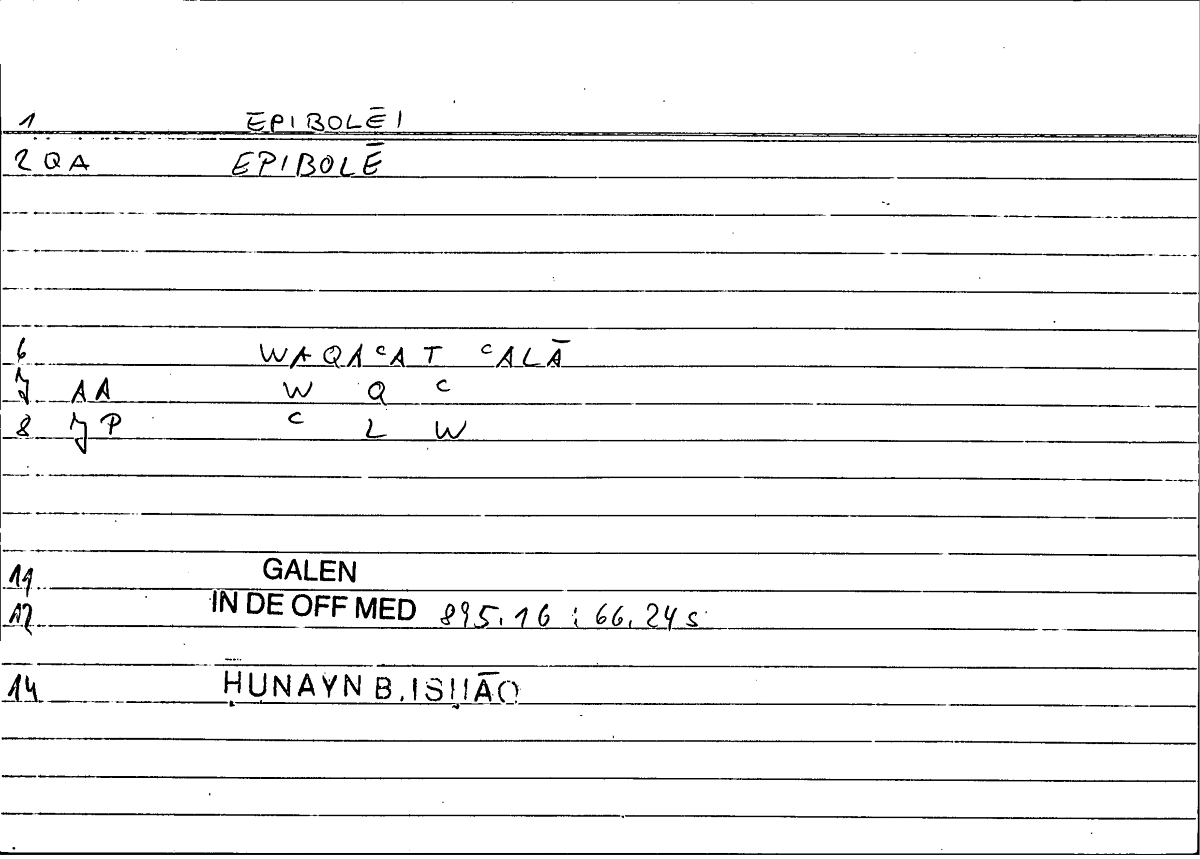 1 EPIBOLĒI
2 QA EPIBOLĒ
6 WAQAᶜAT ᶜALĀ
7 AA W Q ᶜ
8 JP ᶜ L W
11 GALEN
12 IN DE OFF MED 895.16 : 66.24 s
14 ḤUNAYN B. ISḤĀQ